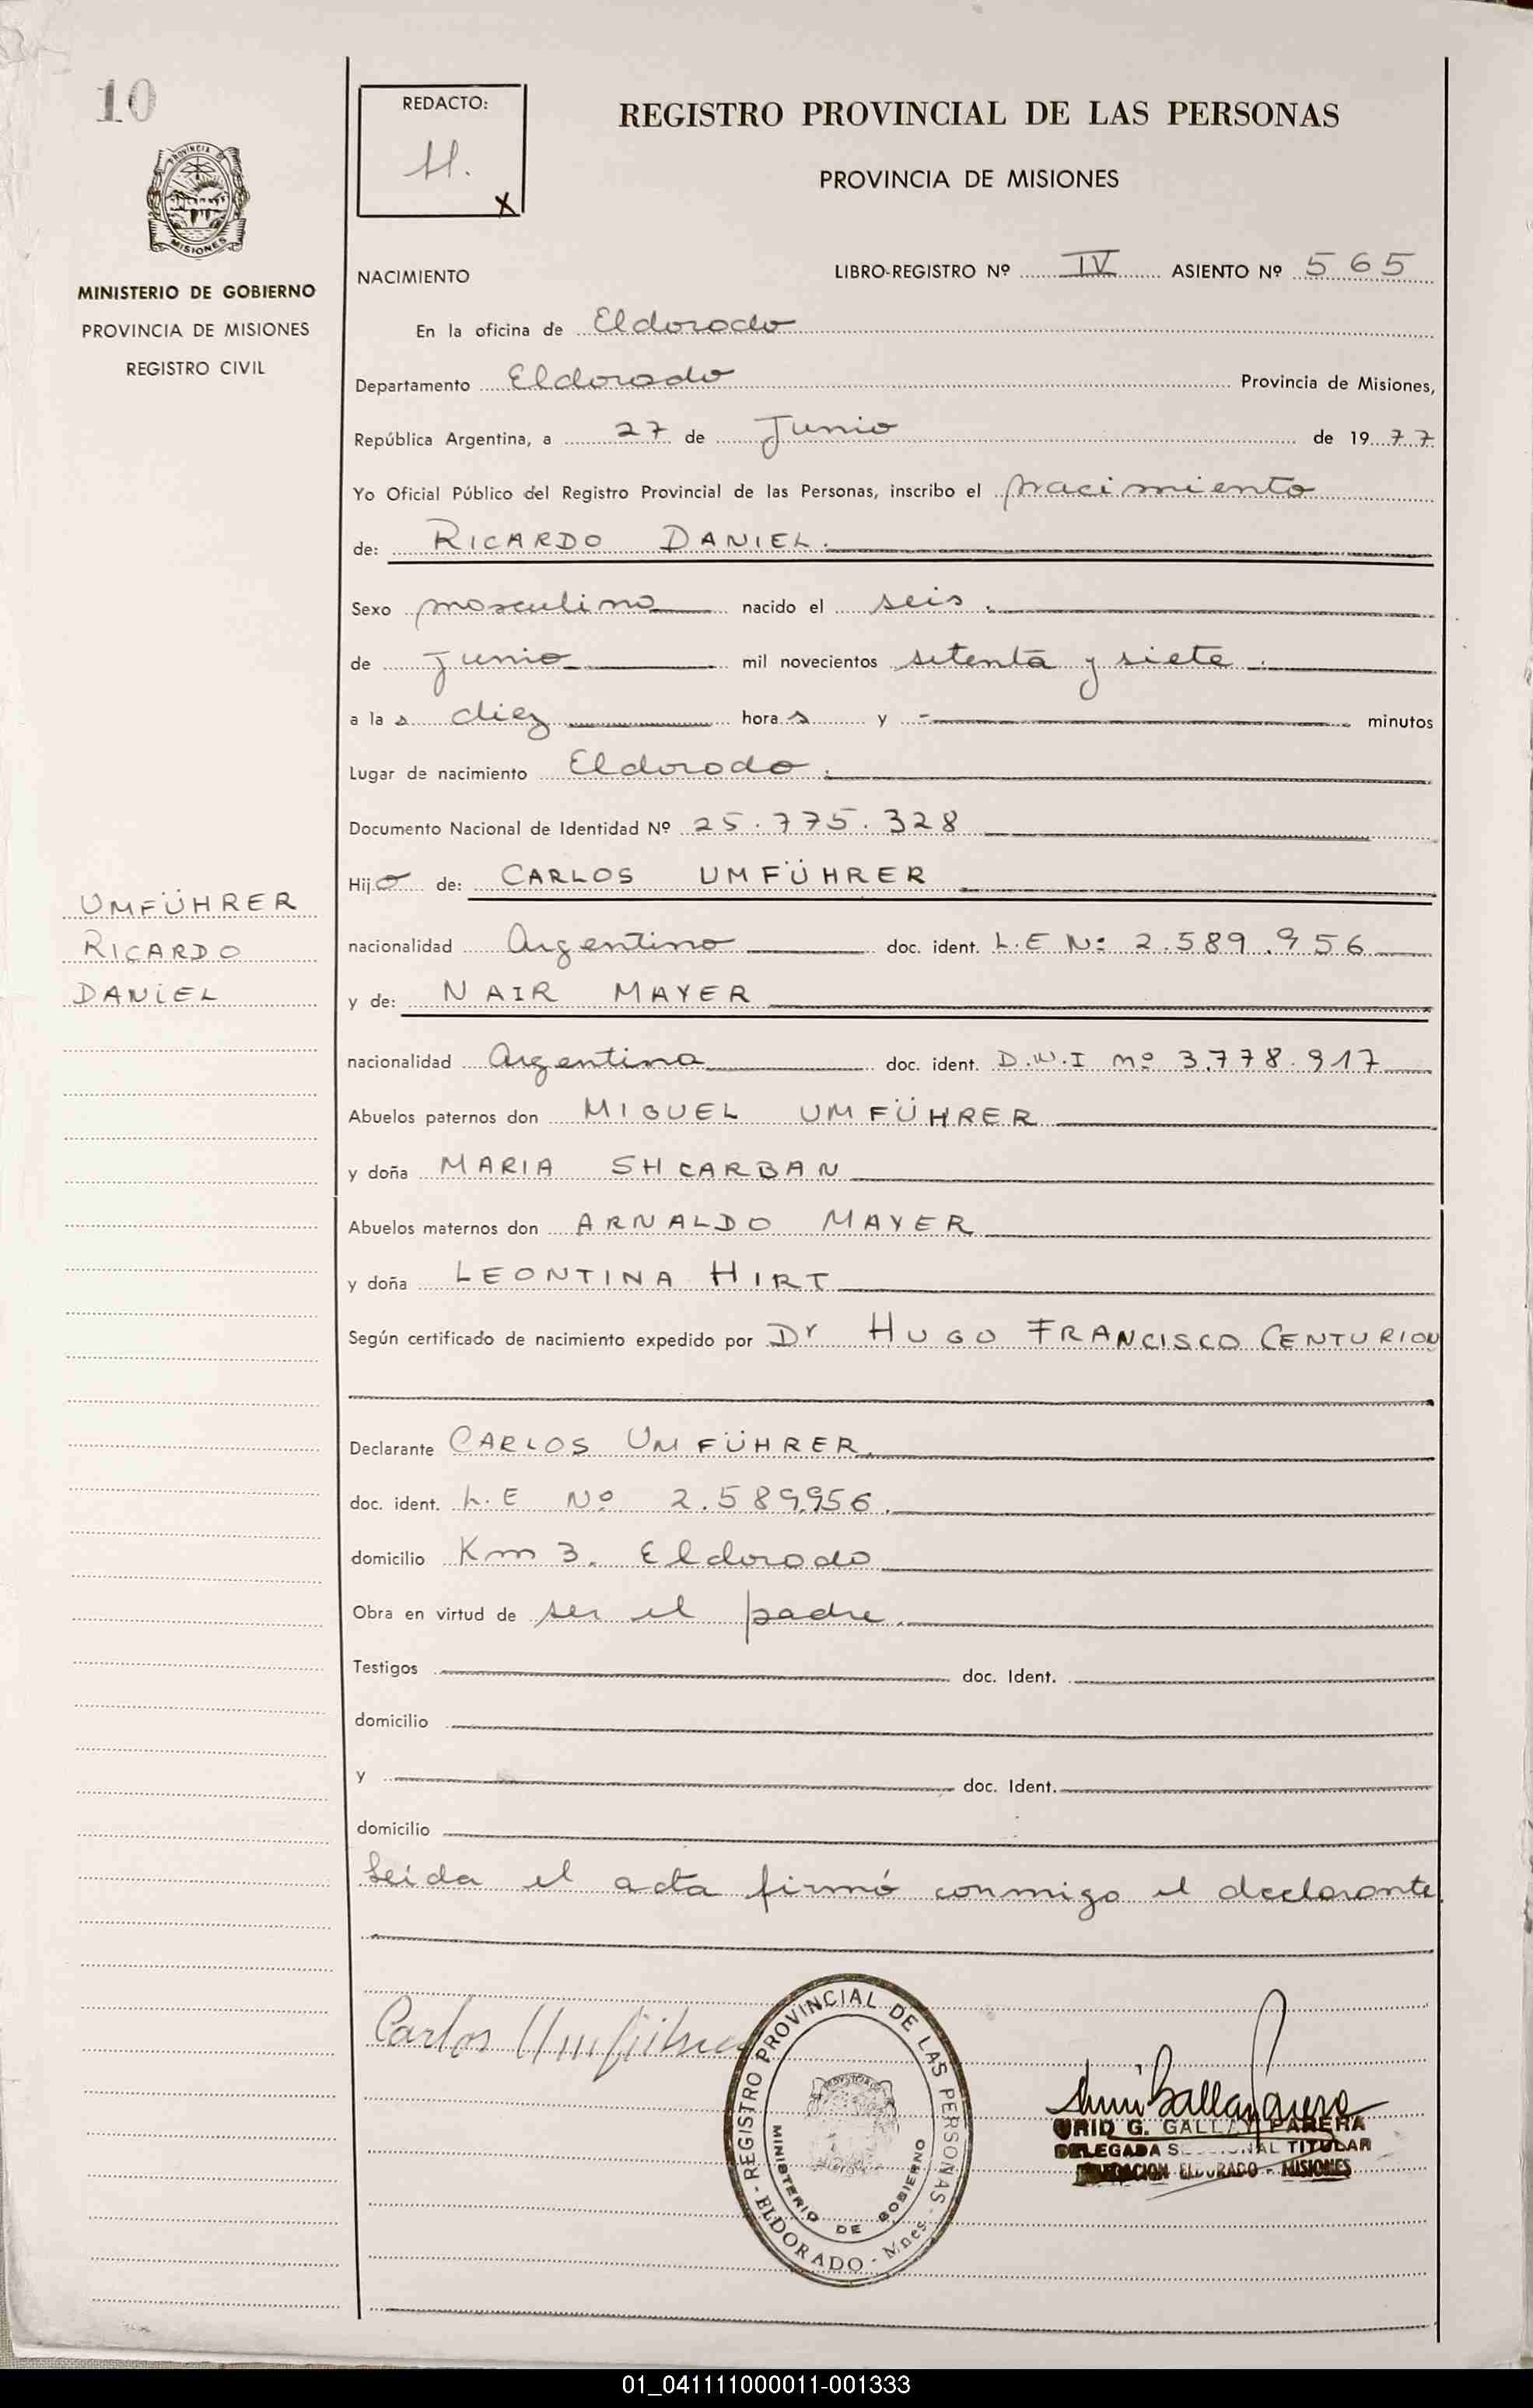 10
PROVINCIA
MISIONES
MINISTERIO DE GOBIERNO
PROVINCIA DE MISIONES
REGISTRO CIVIL
REDACTO:
H.
X
REGISTRO PROVINCIAL DE LAS PERSONAS
PROVINCIA DE MISIONES
NACIMIENTO LIBRO-REGISTRO Nº IV ASIENTO Nº 565
En la oficina de Eldorado
Departamento Eldorado Provincia de Misiones,
República Argentina, a 27 de Junio de 1977
Yo Oficial Público del Registro Provincial de las Personas, inscribo el nacimiento
de: RICARDO DANIEL.
Sexo masculino nacido el seis.
de junio mil novecientos setenta y siete.
a la s diez hora s y - minutos
Lugar de nacimiento Eldorado.
Documento Nacional de Identidad Nº 25.775.328
Hijo de: CARLOS UMFÜHRER
UMFÜHRER
RICARDO
DANIEL
nacionalidad Argentino doc. ident. L.E Nº 2.589.956
y de: NAIR MAYER
nacionalidad Argentina doc. ident. D.N.I Nº 3.778.917
Abuelos paternos don MIGUEL UMFÜHRER
y doña MARIA SHCARBAN
Abuelos maternos don ARNALDO MAYER
y doña LEONTINA HIRT
Según certificado de nacimiento expedido por Dr HUGO FRANCISCO CENTURION
Declarante CARLOS UMFÜHRER.
doc. ident. L.E Nº 2.589.956.
domicilio Km 3. Eldorado
Obra en virtud de ser el padre.
Testigos doc. Ident.
domicilio
y doc. Ident.
domicilio
Leida el acta firmó conmigo el declarante.
Carlos Umführer
REGISTRO PROVINCIAL DE LAS PERSONAS - ELDORADO - Mnes. -
MINISTERIO DE GOBIERNO
G. GALLAY PARERA
DELEGADA TITULAR
ELDORADO - MISIONES
01_041111000011-001333